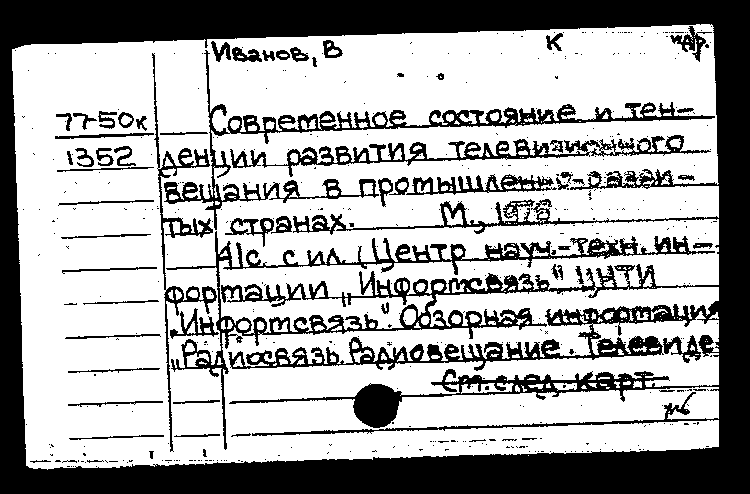 Иванов, В К
77-50к Современное состояние и тен-
1352 денции развития телевизионного
вещания в промышленно-разви-
тых странах. М., 1976.
41с. с ил. (Центр науч.-техн. ин-
формации „Информсвязь" ЦНТИ
„Информсвязь". Обзорная информация
„Радиосвязь. Радиовещание. Телевиде-
См. след. карт.